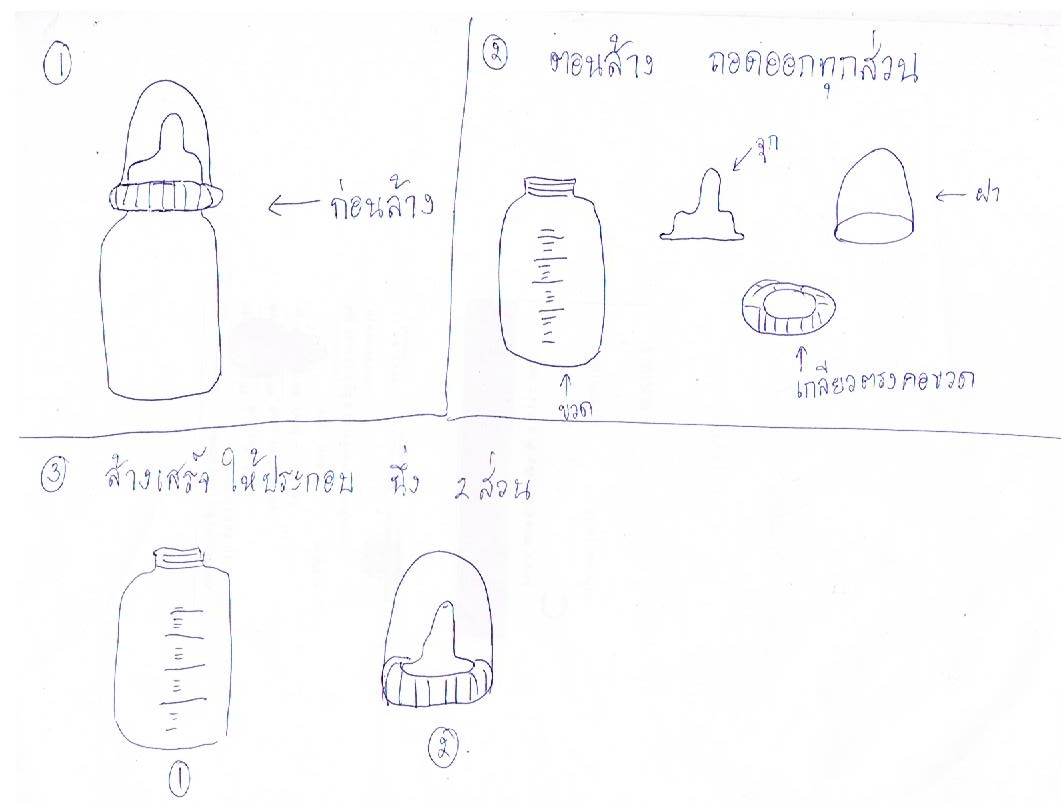 ①
← ก่อนล้าง
② ตอนล้าง ถอดออกทุกส่วน
จุก
ฝา
ขวด
เกลียวตรงคอขวด
③ ล้างเสร็จ ให้ประกอบ นึ่ง 2 ส่วน
①
②